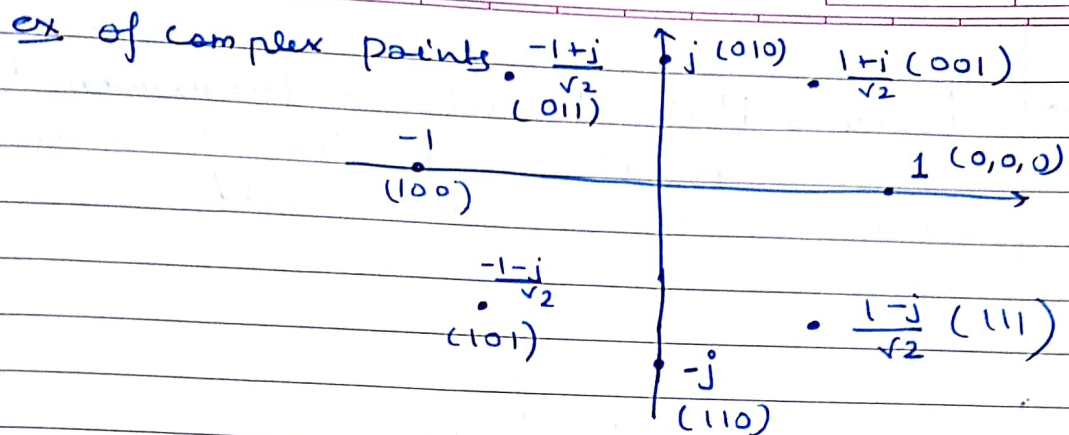 ex of complex points
-1+j
√2
(011)
j (010)
1+j
√2
(001)
-1
(100)
1 (0,0,0)
-1-j
√2
(101)
1-j
√2
(111)
-j
(110)